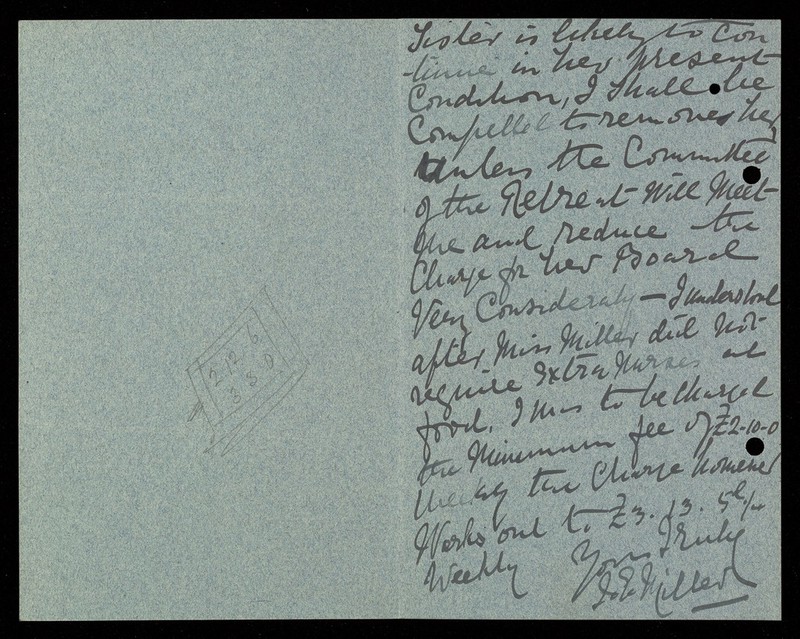 2.12.6
3 3 0.
Sister is likely to con
-tinue in her present
Condition, I shall be
Compelled to remove her
Unless the Committee
of the Retreat Will Meet
Me and reduce the
Charge for her Board
Very Considerably — I understood
after Miss Miller did not
require Extra Nurses and
food. I was to be charged
the Minimum fee of £2-10-0
Weekly the Charge however
Works out to £3. 13. 5
Weekly Yours Truly
Miller